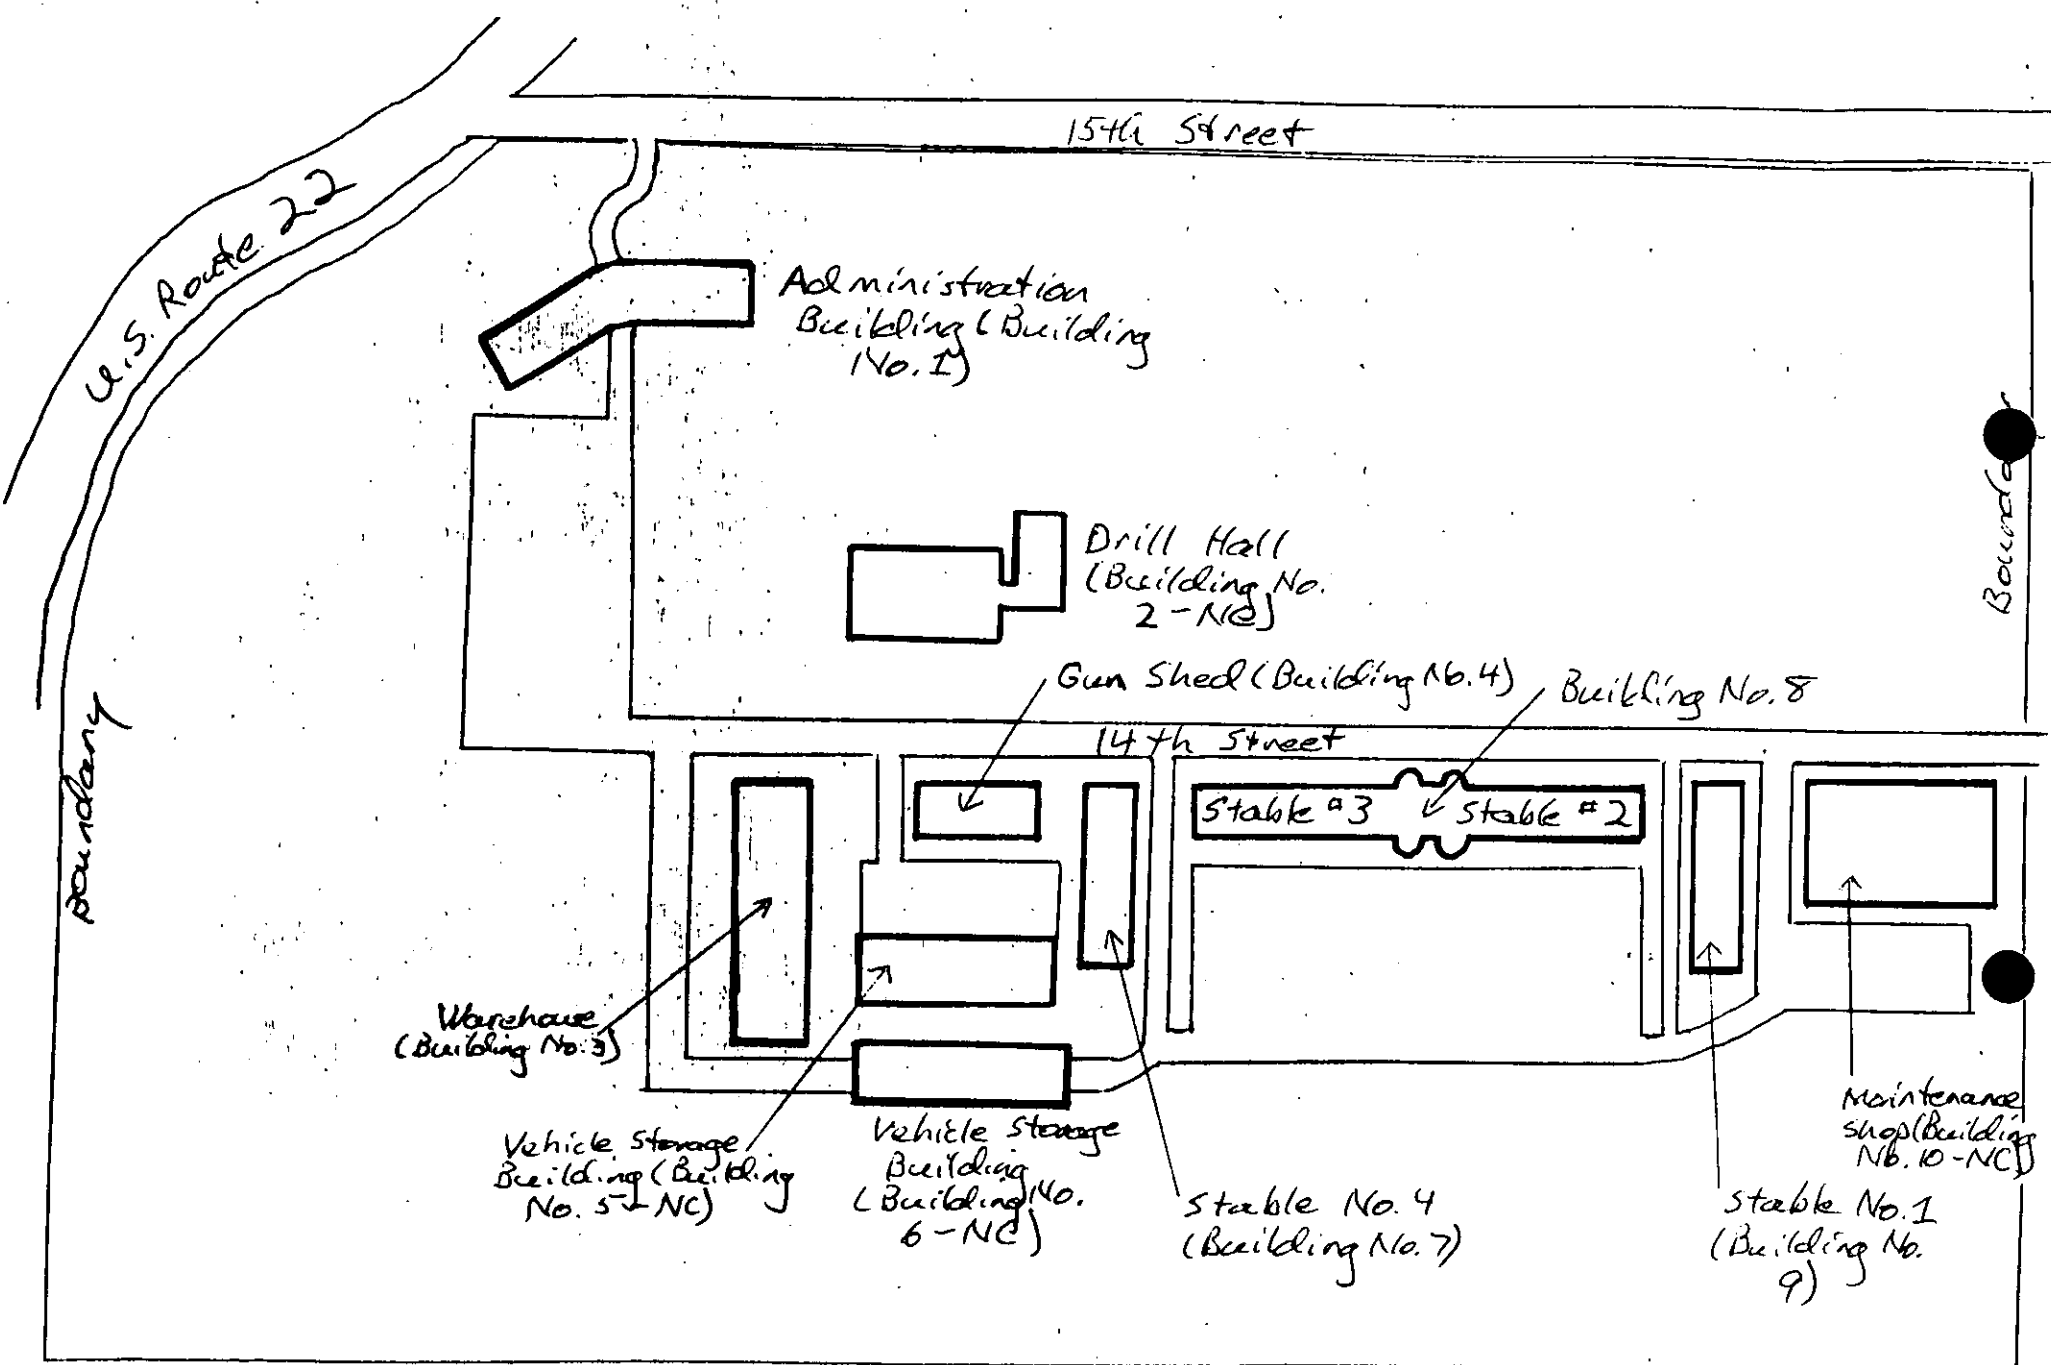 15th Street
U.S. Route 22
Administration
Building (Building
No. 1)
Drill Hall
(Building No.
2-NC)
Boundary
Gun Shed (Building No. 4)
Building No. 8
14th Street
Boundary
Stable #3
Stable #2
Warehouse
(Building No. 3)
Vehicle Storage
Building (Building
No. 5-NC)
Vehicle Storage
Building
(Building No.
6-NC)
Stable No. 4
(Building No. 7)
Stable No. 1
(Building No.
9)
Maintenance
Shop (Building
No. 10-NC)